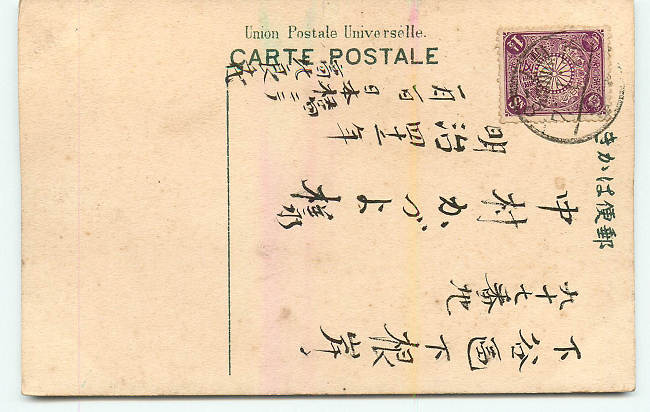 Union Postale Universelle.
CARTE POSTALE
郵便はかき
下谷區下根岸
九十七番地
中村かづよ様
明治四十二年
日本橋